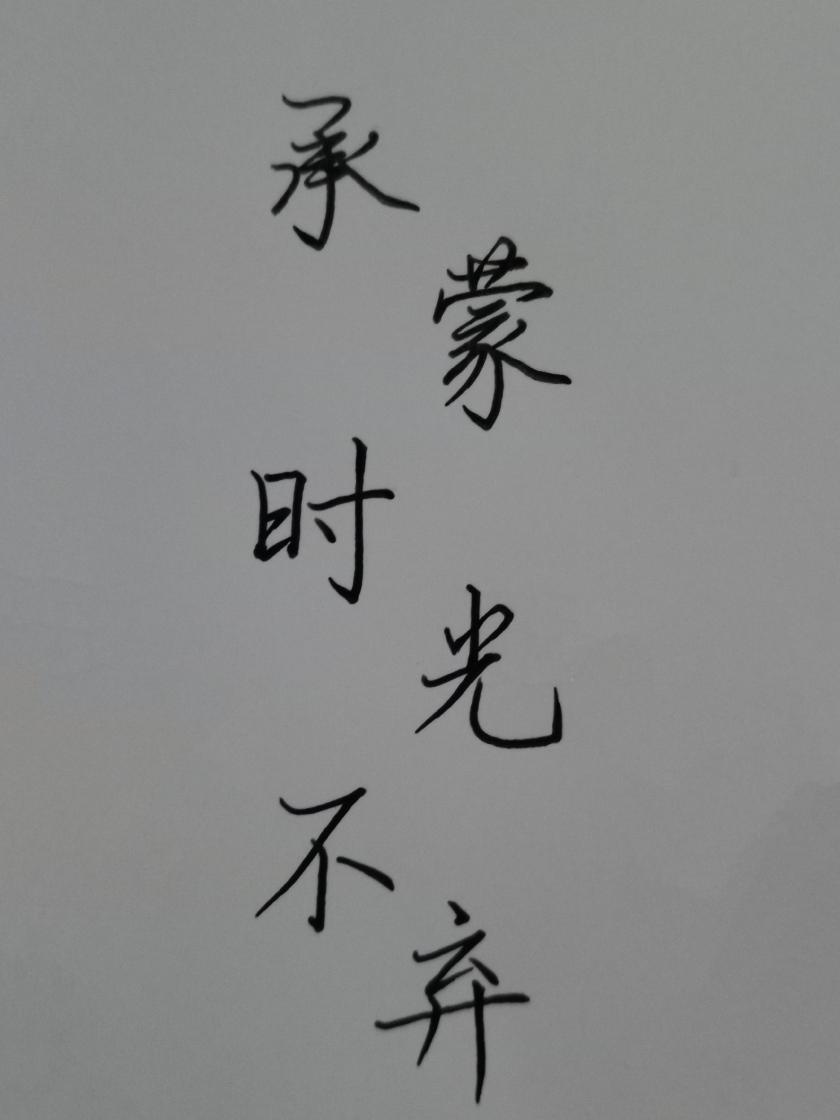 承蒙时光不弃